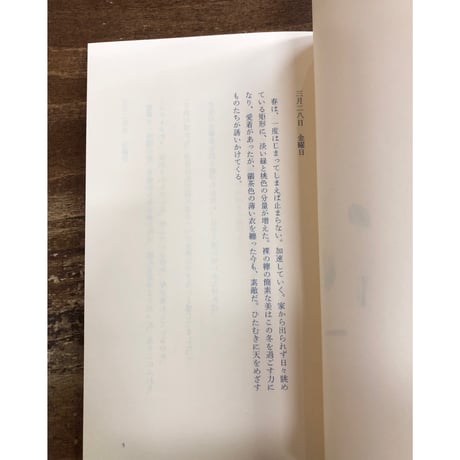 三月二八日 金曜日
春は、一度はじまってしまえば止まらない。加速していく。家から出られず日々眺め
ている矩形に、淡い緑と桃色の分量が増えた。裸の欅の簡素な美はこの冬を過ごす力に
なり、愛着があったが、鶸茶色の薄い衣を纏った今も、素敵だ。ひたむきに天をめざす
ものたちが誘いかけてくる。
5